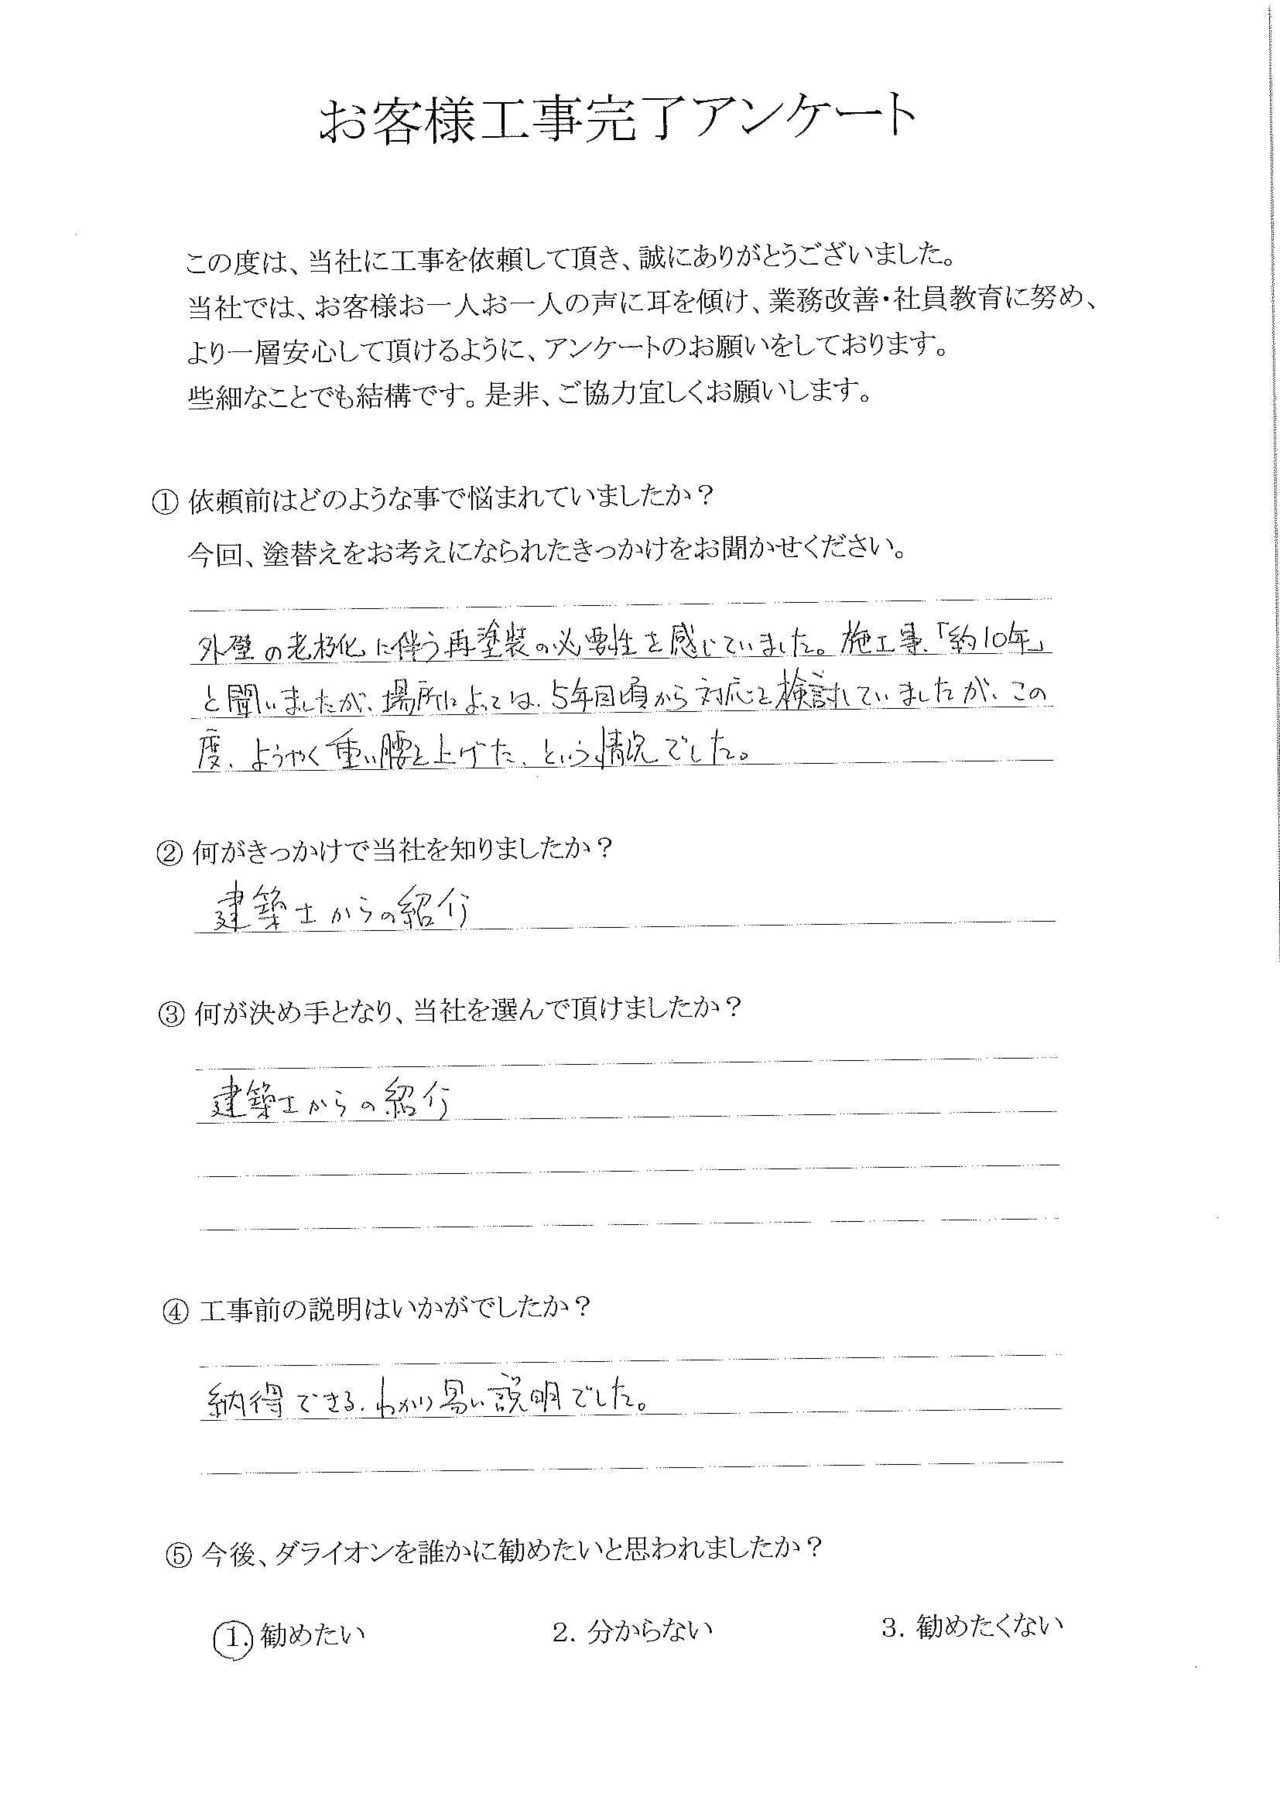 お客様工事完了アンケート
この度は、当社に工事を依頼して頂き、誠にありがとうございました。
当社では、お客様お一人お一人の声に耳を傾け、業務改善・社員教育に努め、
より一層安心して頂けるように、アンケートのお願いをしております。
些細なことでも結構です。是非、ご協力宜しくお願いします。
① 依頼前はどのような事で悩まれていましたか？
今回、塗替えをお考えになられたきっかけをお聞かせください。
外壁の老朽化に伴う再塗装の必要性を感じていました。施工事、「約10年」
と聞いましたが、場所によっては、5年目頃から対応を検討していましたが、この
度、ようやく重い腰を上げた、という情況でした。
② 何がきっかけで当社を知りましたか？
建築士からの紹介
③ 何が決め手となり、当社を選んで頂けましたか？
建築士からの紹介
④ 工事前の説明はいかがでしたか？
納得できる、わかり易い説明でした。
⑤ 今後、ダライオンを誰かに勧めたいと思われましたか？
1. 勧めたい 2. 分からない 3. 勧めたくない